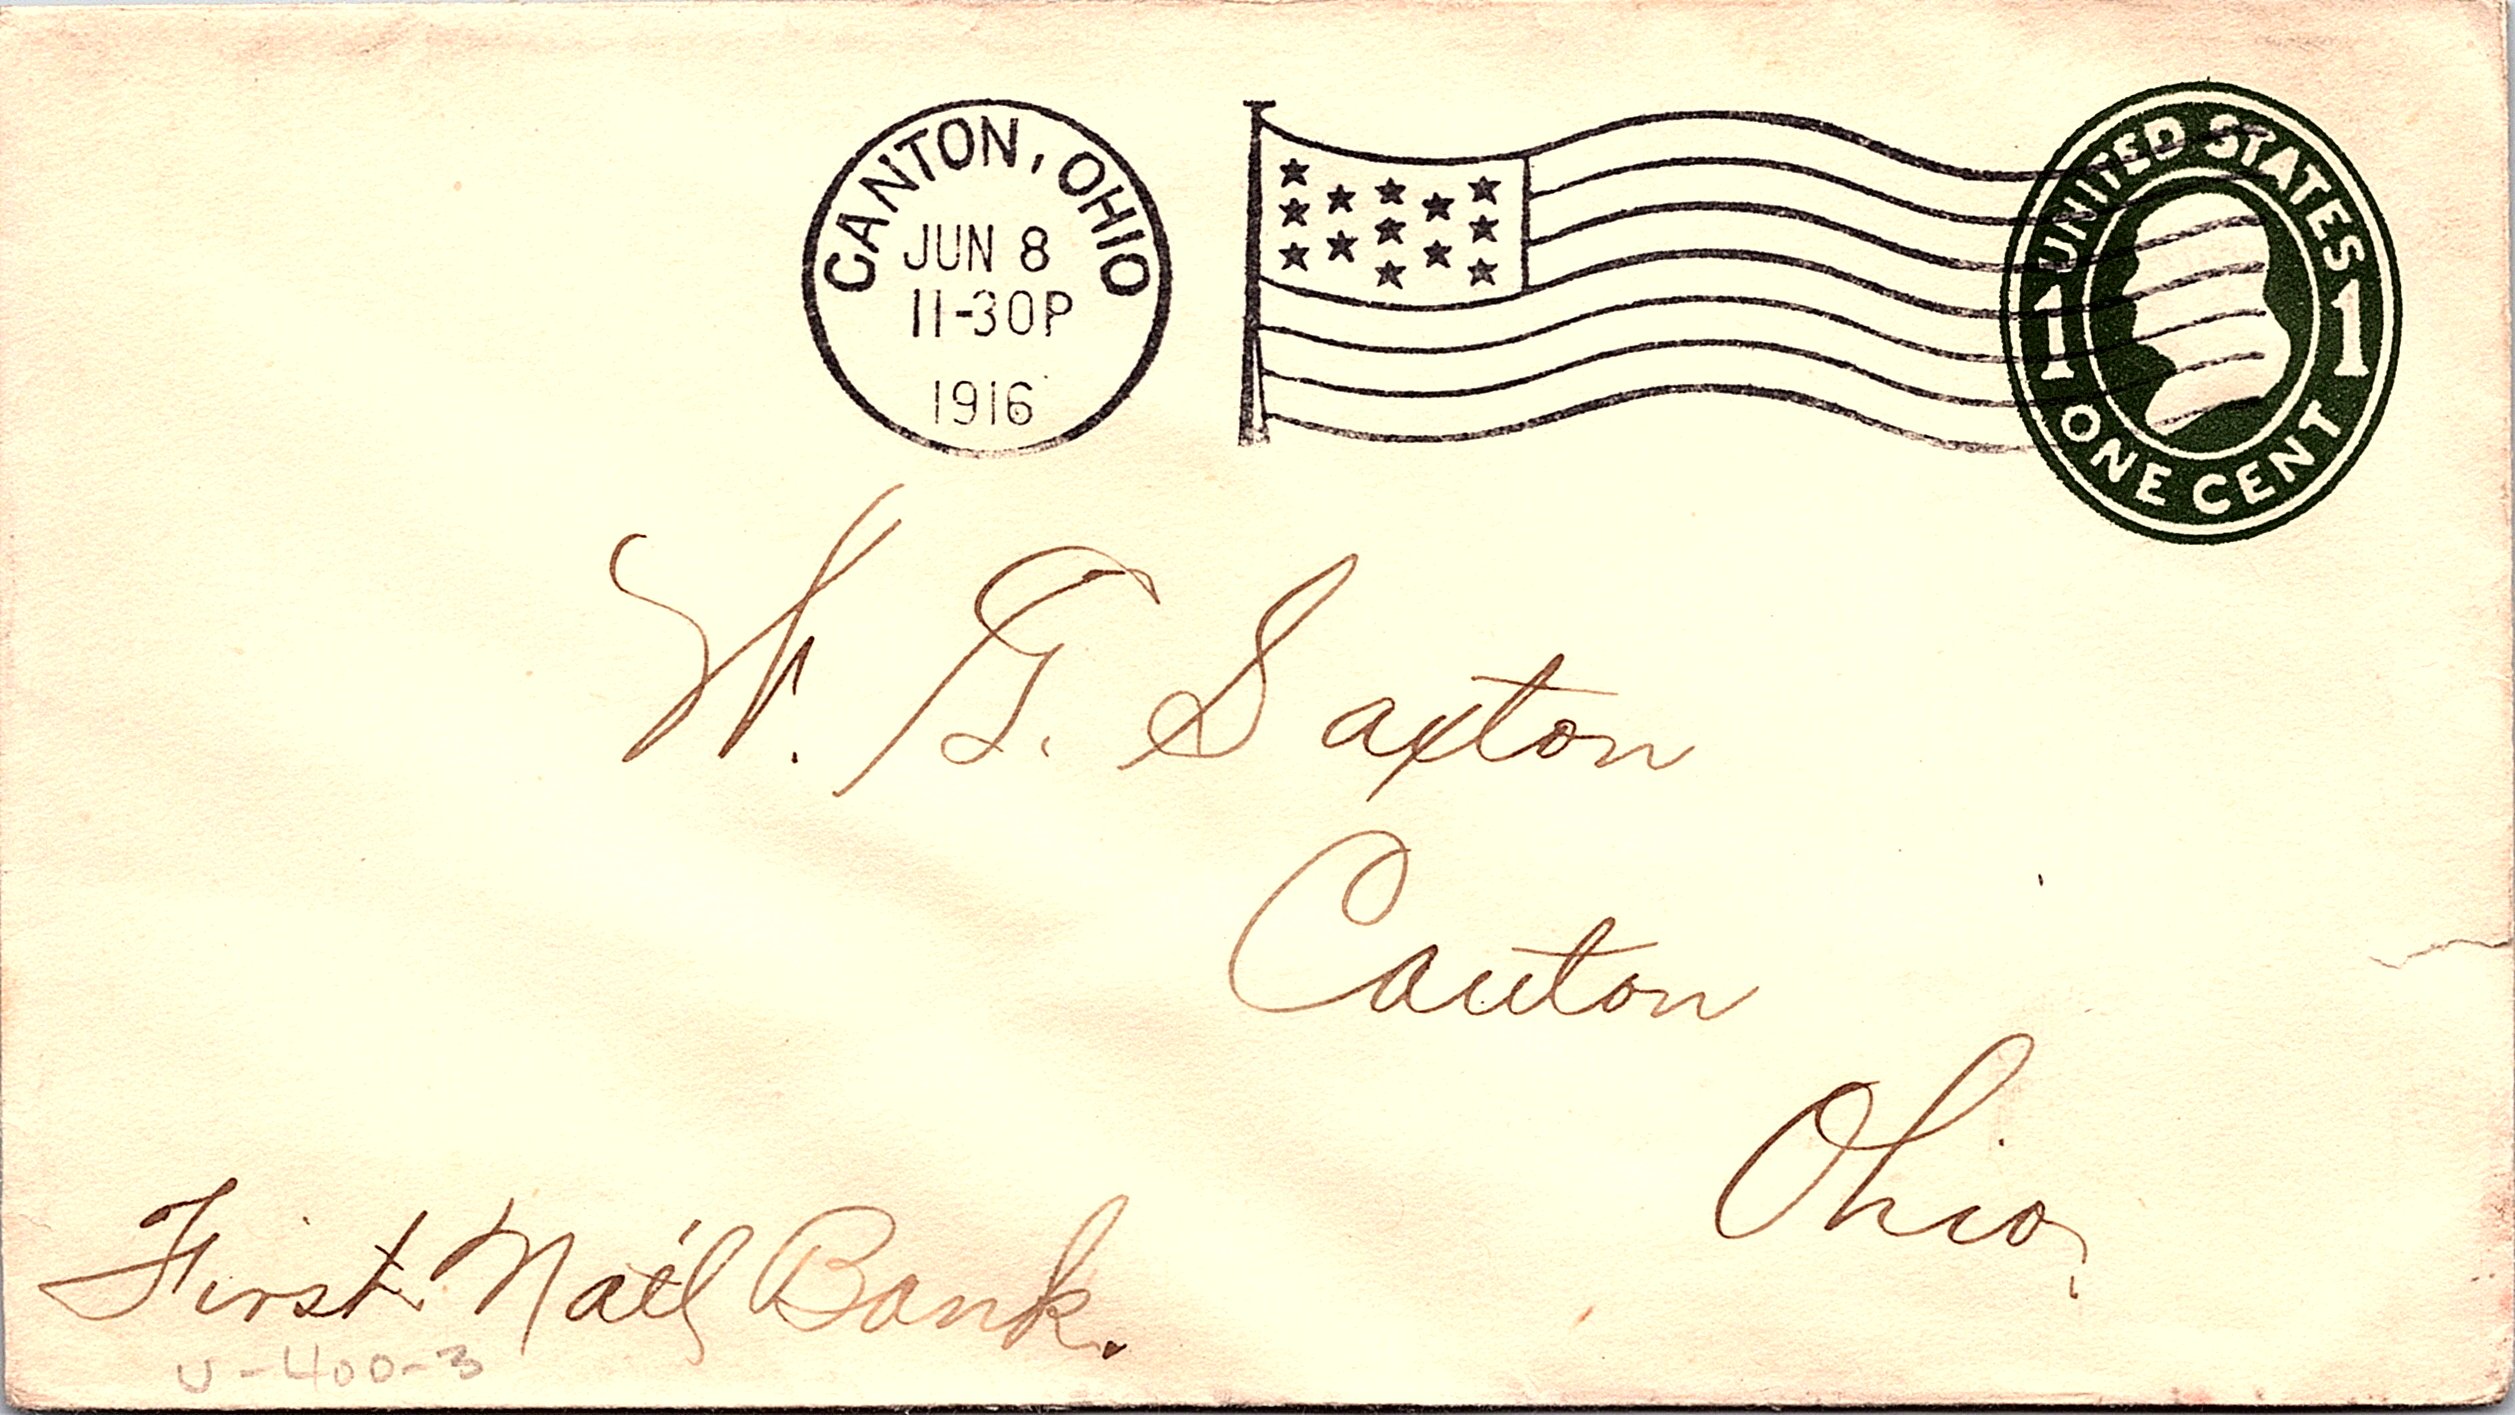 CANTON, OHIO
JUN 8
11-30P
1916
UNITED STATES
1 1
ONE CENT
W. G. Saxton
Canton
Ohio,
First Nat'l Bank.
U-400-3